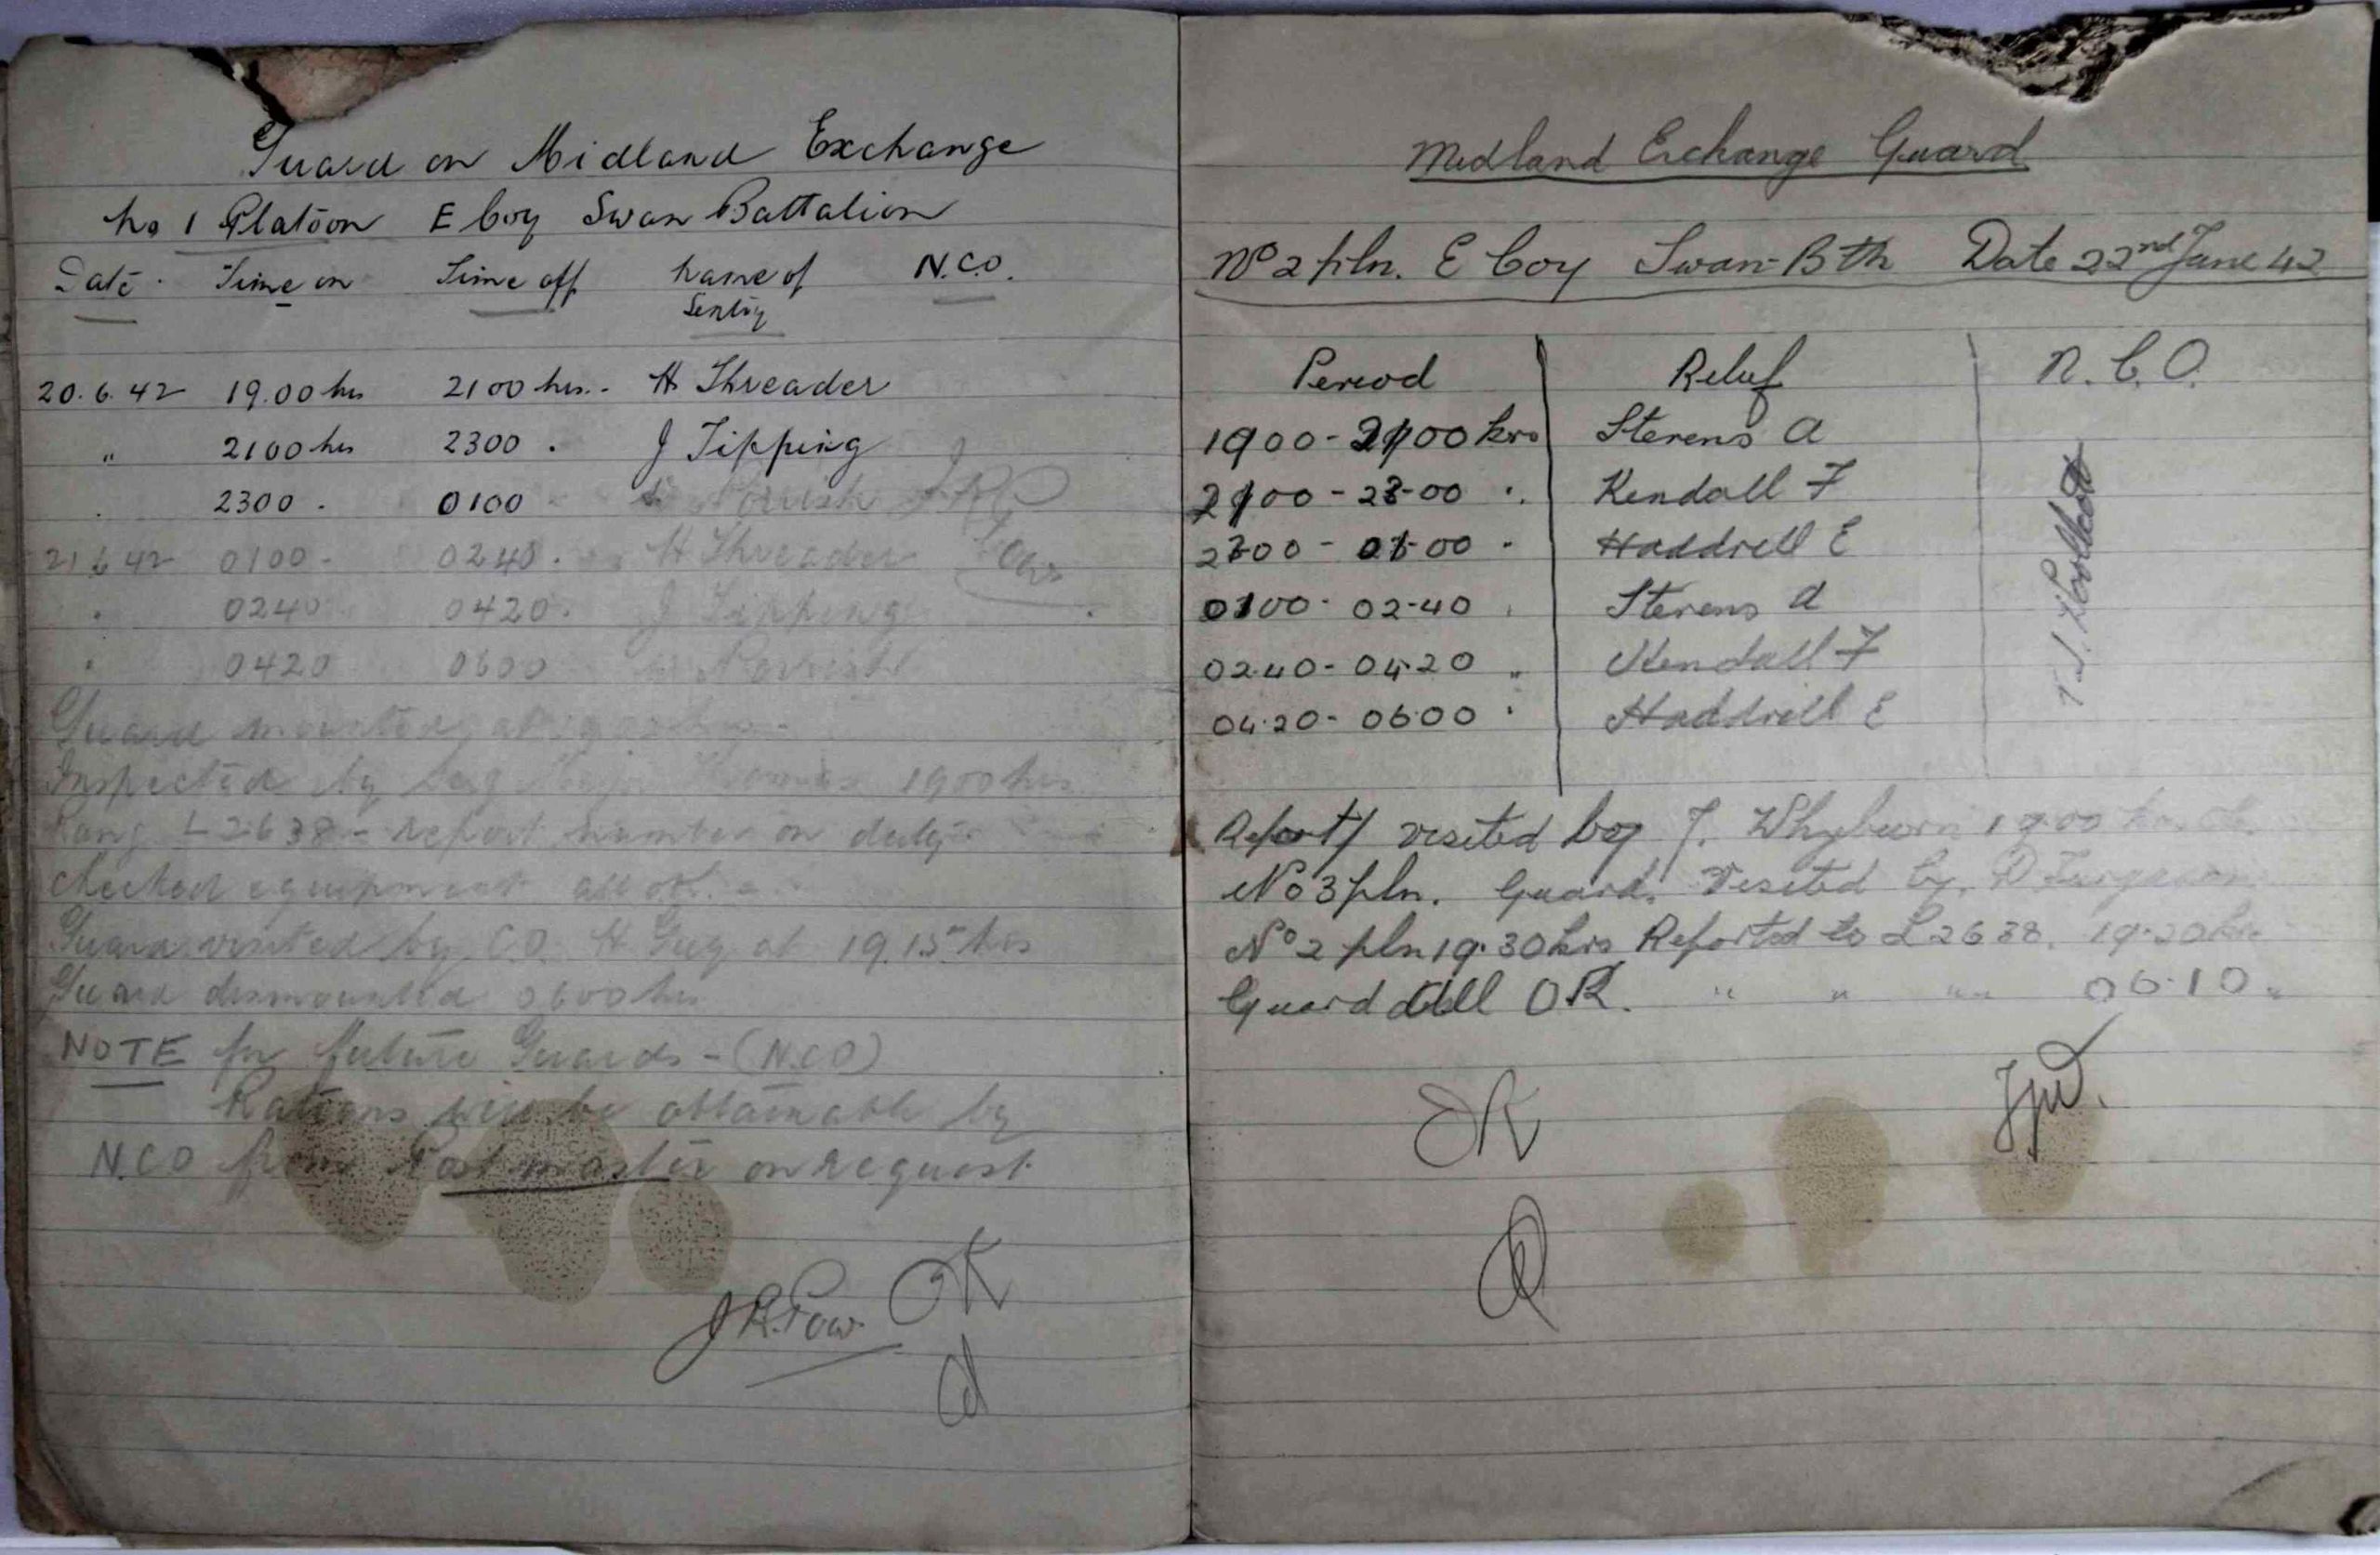 Guard on Midland Exchange
No 1 Platoon E Coy Swan Battalion
Date. Time on Time off Name of N.C.O.
Sentry
20.6.42 19.00 hrs 2100 hrs. - H Threader
" 2100 hrs 2300 . J Tipping
. 2300 . 0100 Norrish J.R.P
21.6.42 0100 - 0240 . H Threader Pow
" 0240 0420. J Tipping
" 0420 0600 Norrish
Guard mounted at
Inspected by Thomas 1900 hrs
Rang L2638 - Report number on duty
Checked equipment all OK. -
Guard visited by C.O. H Guy at 19.15 hrs
Guard dismounted 0600 hrs
NOTE for future Guards - (N.C.O)
Rations will be obtainable by
N.C.O from Postmaster on request
J R. Pow. OK
Midland Exchange Guard
No 2 pln. E Coy Swan Btn Date 22nd June 42
Period Relief N.C.O.
1900 - 2100 hrs Stevens A
2100 - 23-00 " Kendall F
2300 - 01-00 " Haddrell E
0100 - 02-40 " Stevens A
02.40 - 04.20 " Kendall F
04.20 - 06.00 " Haddrell E
Report/ visited by J. Whyburn 19.00 hrs
No 3 pln. Guard. Visited by. D Furgason
No 2 pln 19.30 hrs Reported to L2638. 19.20 hrs
Guard all OK. " " " 06.10 "
OK